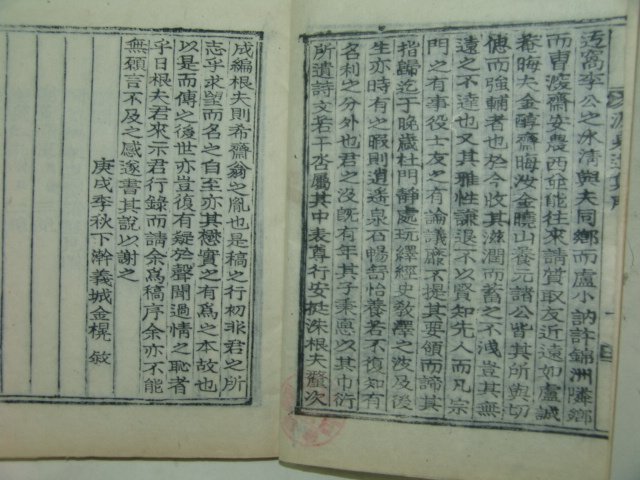 迃窩李公之冰淸與夫同鄕而盧小訥許錦洲隣鄕
而曺深齋安農西並能往來請質取友近遠如盧誠
菴晦夫金醇齋晦汝金曉山養元諸公皆其所與切
偲而強輔者也於今收其滋潤而蓄之不洩豈其無
遠之不達也又其雅性謙退不以賢知先人而凡宗
門之有事役士友之有論議靡不提其要領而諦其
指歸迄于晩歲杜門靜處玩繹經史敎澤之波及後
生亦時有之暇則逍遙泉石暢舒怡養若不復知有
名利之分外也君之沒旣有年其子秉惠以其巾衍
所遺詩文若干沓屬其中表尊行安挺洙根夫釐次
成編根夫則希齋翁之胤也是稿之行初非君之所
志乎求望而名之自至亦其懋實之有爲之本故也
以是而傳之後世亦豈復有疑於聲聞過情之恥者
乎日根夫君來示君行錄而請余爲稿序余亦不能
無頫言不及之感遂書其說以謝之
庚戌季秋下澣義城金榥敏